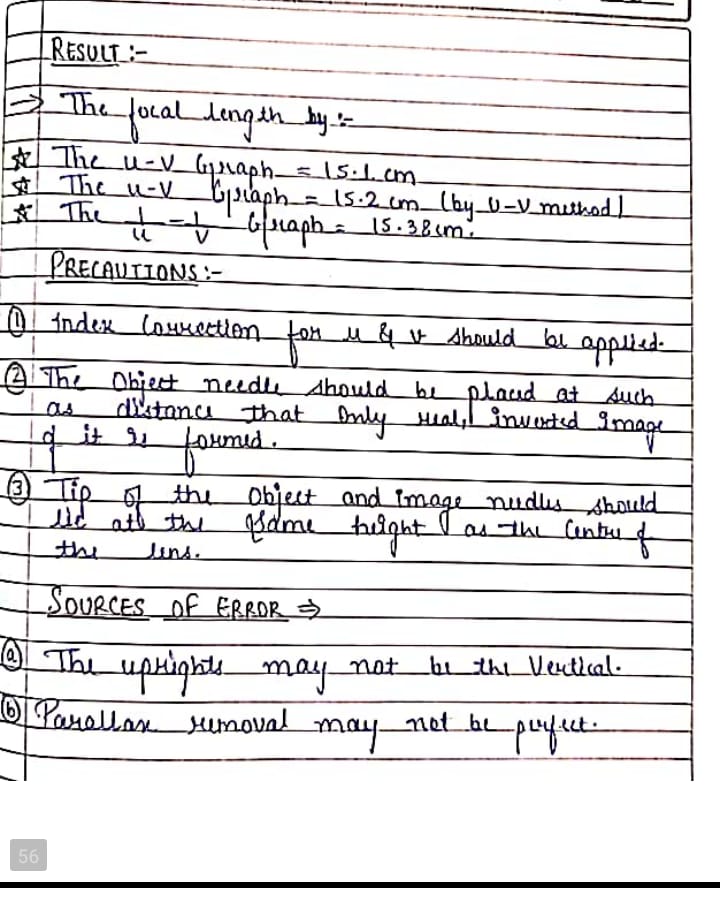 RESULT :-
⇒ The focal length by :-
☆ The u-v Graph = 15.1 cm
☆ The u-v Graph = 15.2 cm (by u-v method)
☆ The 1/u - 1/v Graph = 15.38 cm.
PRECAUTIONS :-
① Index Correction for u & v should be applied.
② The Object needle should be placed at such
as distance that Only real, inverted Image
of it is formed.
③ Tip of the Object and image needles should
lie at the same height as the Centre of
the lens.
SOURCES OF ERROR ⇒
ⓐ The uprights may not be the Vertical.
ⓑ Parallax removal may not be perfect.
56